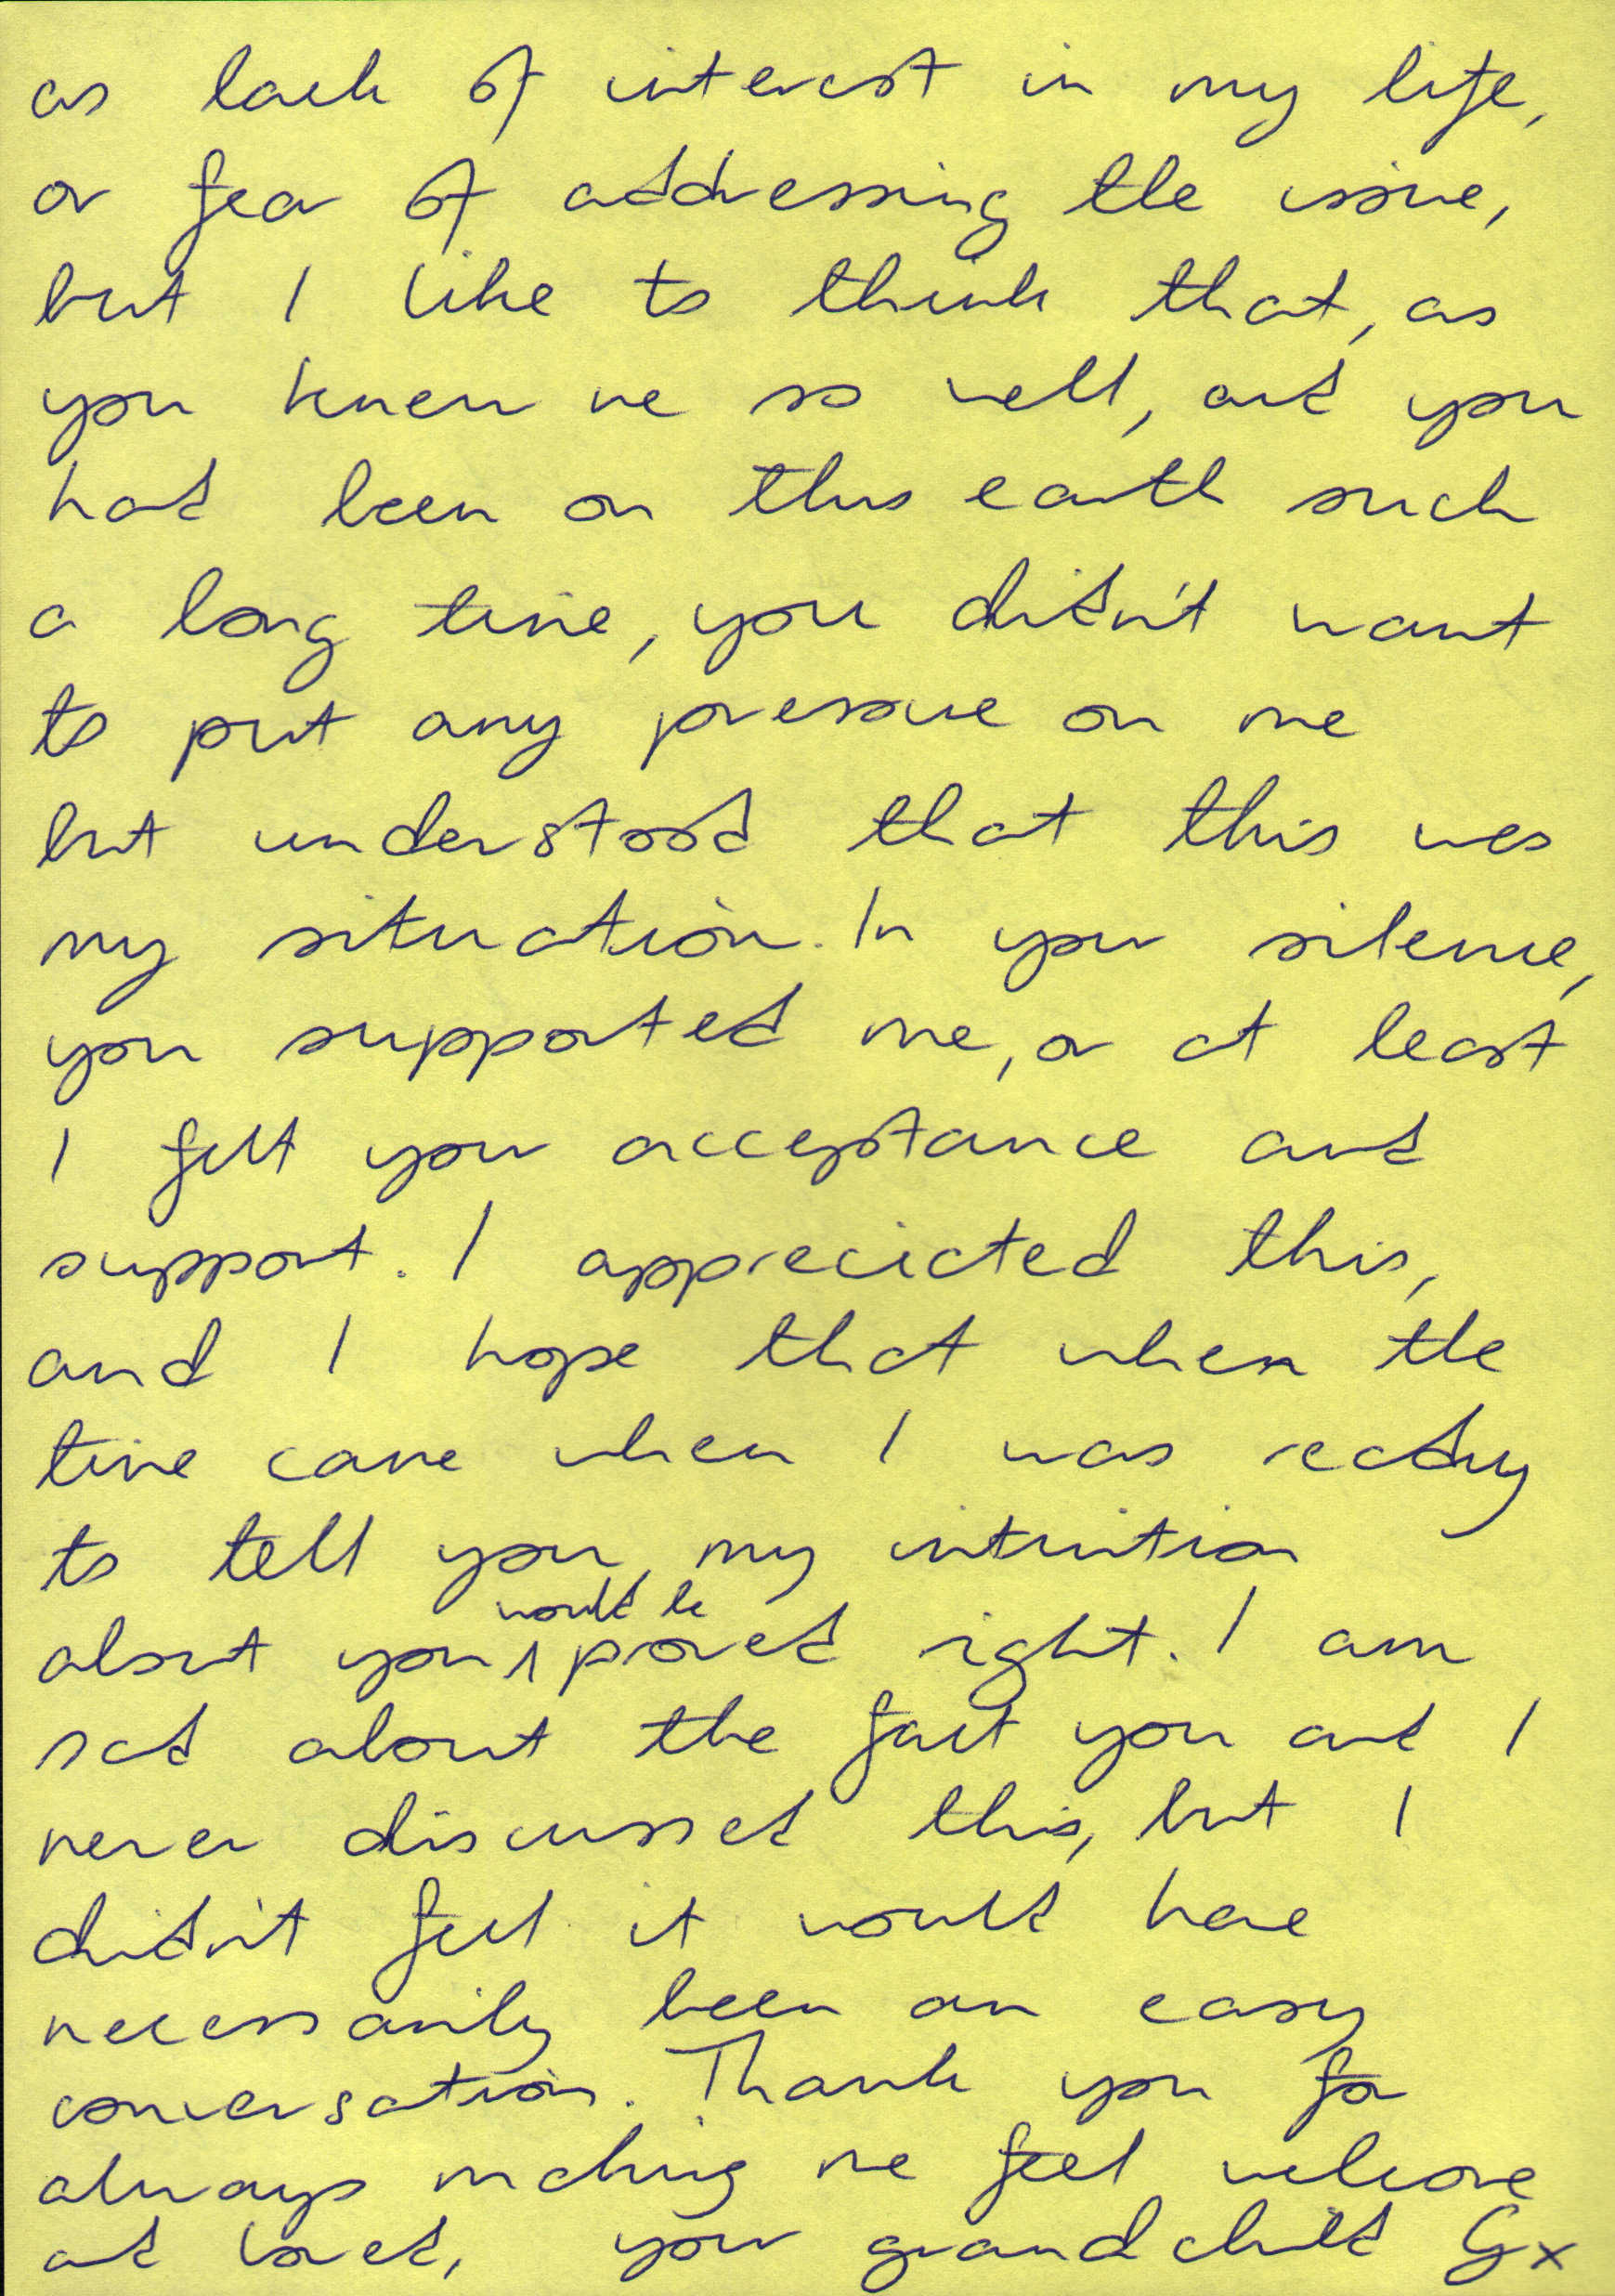 as lack of interest in my life,
or fear of addressing the issue,
but I like to think that, as
you knew me so well, and you
had been on this earth such
a long time, you didn't want
to put any pressure on me
but understood that this was
my situation. In your silence,
you supported me, or at least
I felt your acceptance and
support. I appreciated this,
and I hope that when the
time came when I was ready
to tell you, my intuition
would be
about you ∧ proved right. I am
sad about the fact you and I
never discussed this, but I
didn't feel it would have
necessarily been an easy
conversation. Thank you for
always making me feel welcome
and loved, your grandchild Gx